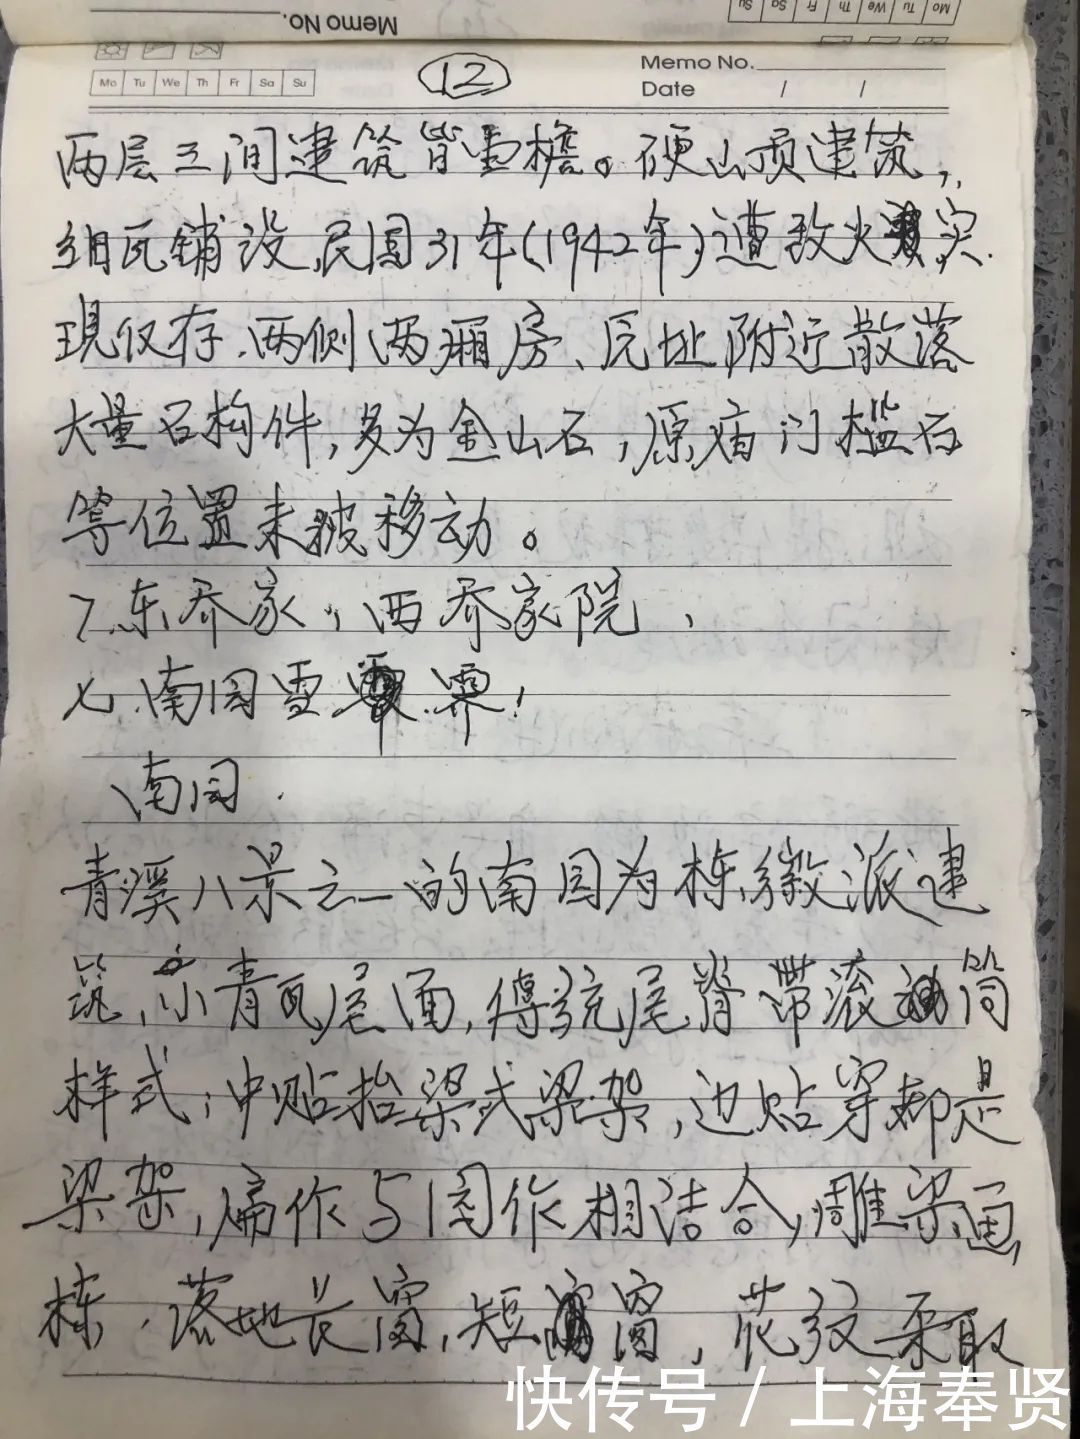 Memo No.
Mo Tu We Th Fr Sa Su
Mo Tu We Th Fr Sa Su
12
Memo No.
Date / /
两层三间建筑皆重檐。硬山顶建筑,
细瓦铺设,民国31年(1942年)遭致火灾.
现仅存.两侧两厢房、瓦址附近散落
大量石构件,多为金山石,原庙门槛石
等位置未被移动。
7.东乔家,西乔家院.
七.南园雪霁!
南园.
青溪八景之一的南园为栋徽派建
筑,小青瓦屋面,傅统尾脊带滚筒
样式;中贴抬梁式梁架,边贴穿都是
梁架,扁作与圆作相结合,雕梁画
栋.落地长窗,短窗,花纹采取
快传号 / 上海奉贤